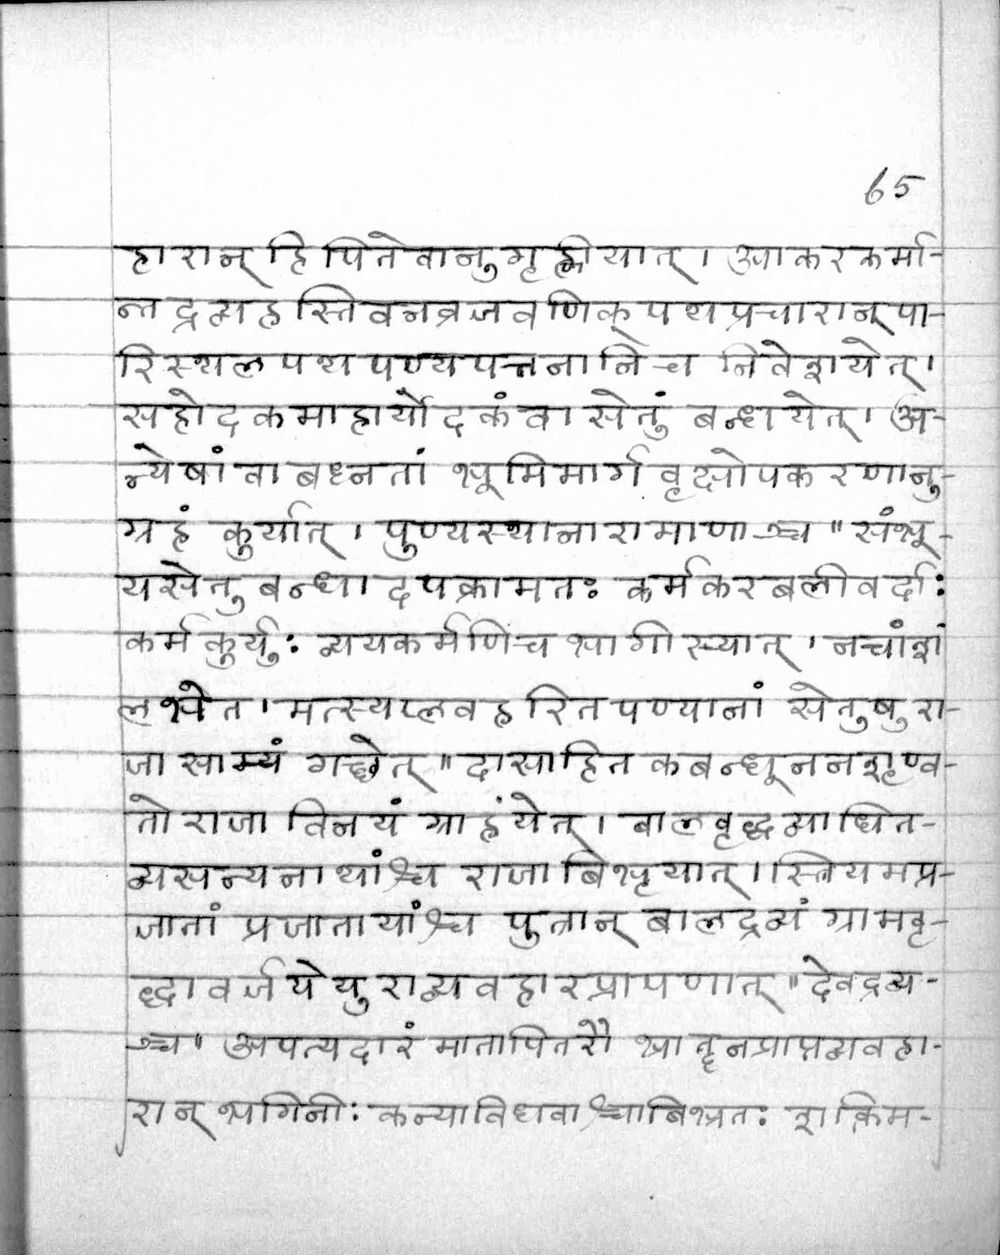 65
हारान् हि पितेवानुगृह्णीयात् । आकरकर्मा-
न्तद्रव्यहस्तिवनव्रजवणिक्पथप्रचारान् पा-
रिस्थलपथपण्यपत्तनानि च निवेशयेत् ।
सहोदकमाहार्योदकं वा सेतुं बन्धयेत् । अ-
न्येषां वा बध्नतां भूमिमार्गवृक्षोपकरणानु-
ग्रहं कुर्यात् । पुण्यस्थानारामाणाञ्च ॥ संभू-
यसेतुबन्धादपक्रामतः कर्मकरबलीवर्दाः
कर्म कुर्युः व्ययकर्मणि च भागी स्यात् । नचांशं
लभेत । मत्स्यप्लवहरितपण्यानां सेतुषु रा-
जा साम्यं गच्छेत् ॥ दासाहितकबन्धूननशृण्व-
तो राजा विनयं ग्राहयेत् । बालवृद्धव्याधित-
व्यसन्यनाथांश्च राजा बिभृयात् । स्त्रियमप्र-
जातां प्रजातायांश्च पुत्रान् बालद्रव्यं ग्रामवृ-
द्धा वर्जयेयुराव्यवहारप्रापणात् ॥ देवद्रव्य-
ञ्च ॥ अपत्यदारं मातापितरौ भ्रातॄनप्राप्तव्यवहा-
रान् भगिनीः कन्याविधवाश्चाबिभ्रतः शक्तिम-